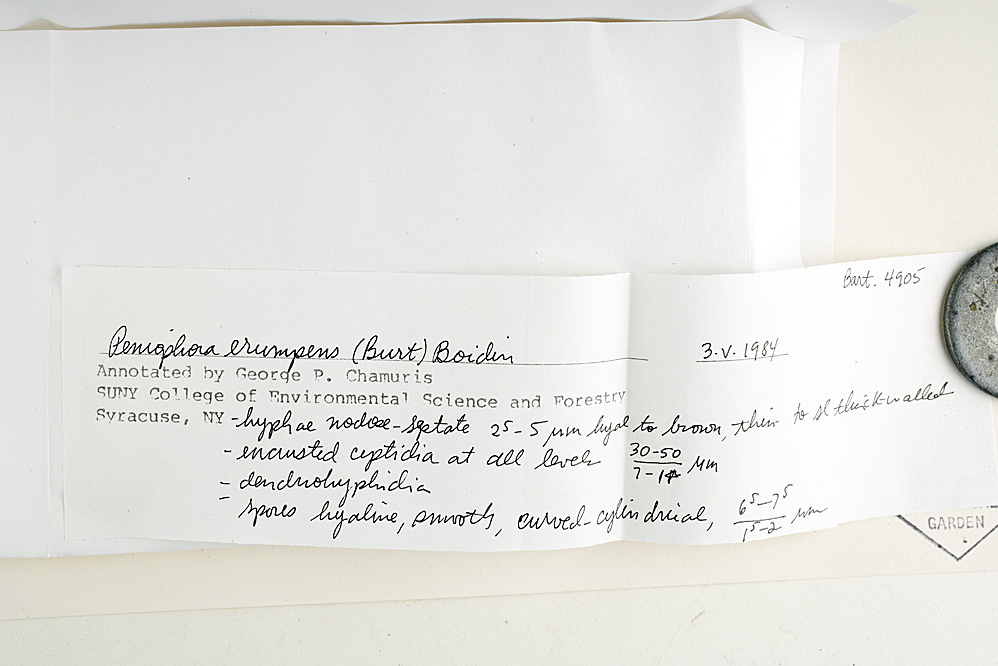 Bart. 4905
Peniophora erumpens (Burt) Boidin 3.V.1984
Annotated by George P. Chamuris
SUNY College of Environmental Science and Forestry
Syracuse, NY - hyphae nodose-septate 2⁵-5 µm hyal to brown, thin to sl thick-walled
- encrusted cystidia at all levels 30-50
7- µm
- dendrohyphidia
- spores hyaline, smooth, curved-cylindrical, 6⁵-7⁵
1⁵-2 µm
GARDEN